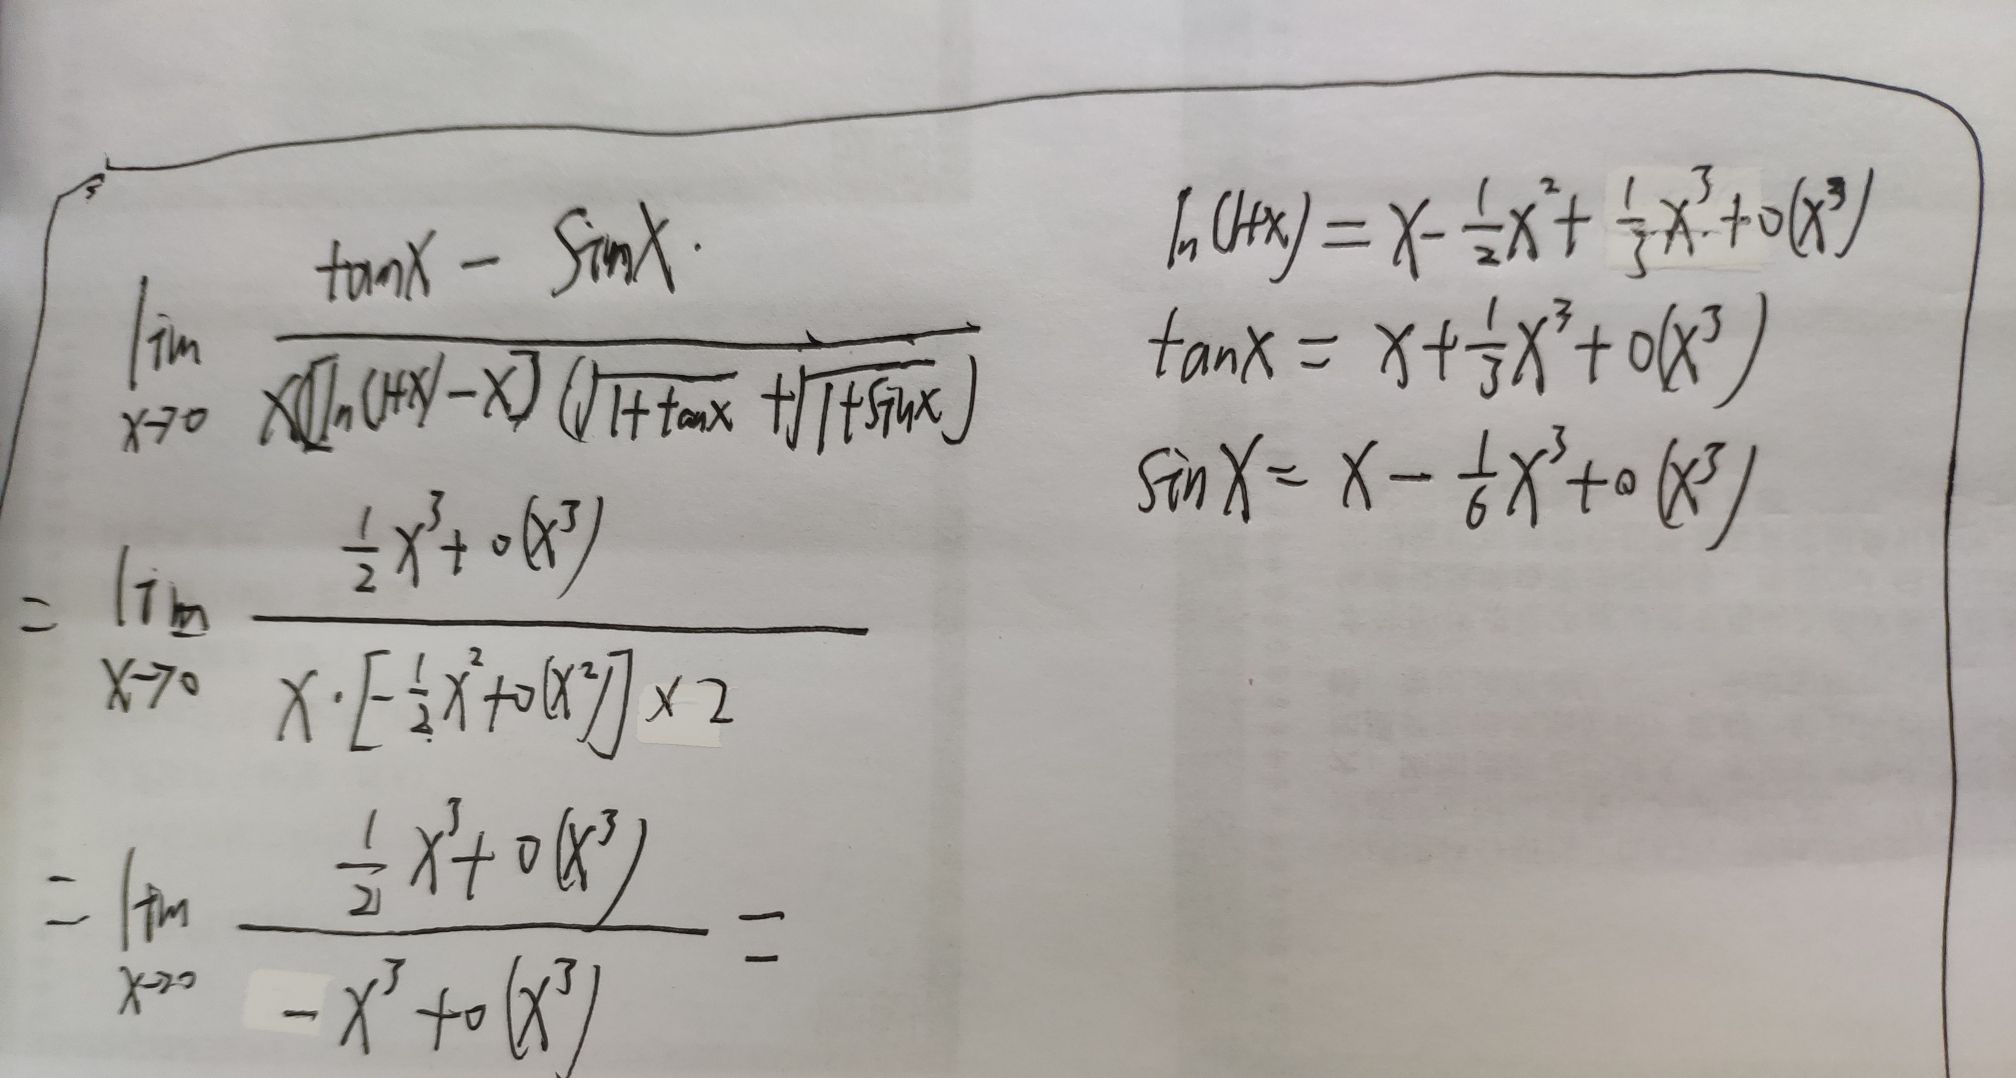 lim x→0 (tanx - sinx) / (x[ln(1+x)-x](√(1+tanx) + √(1+sinx)))
= lim x→0 (1/2 x³ + o(x³)) / (x·[-1/2 x² + o(x²)] × 2)
= lim x→0 (1/2 x³ + o(x³)) / (-x³ + o(x³)) =
ln(1+x) = x - 1/2 x² + 1/3 x³ + o(x³)
tanx = x + 1/3 x³ + o(x³)
sinx = x - 1/6 x³ + o(x³)